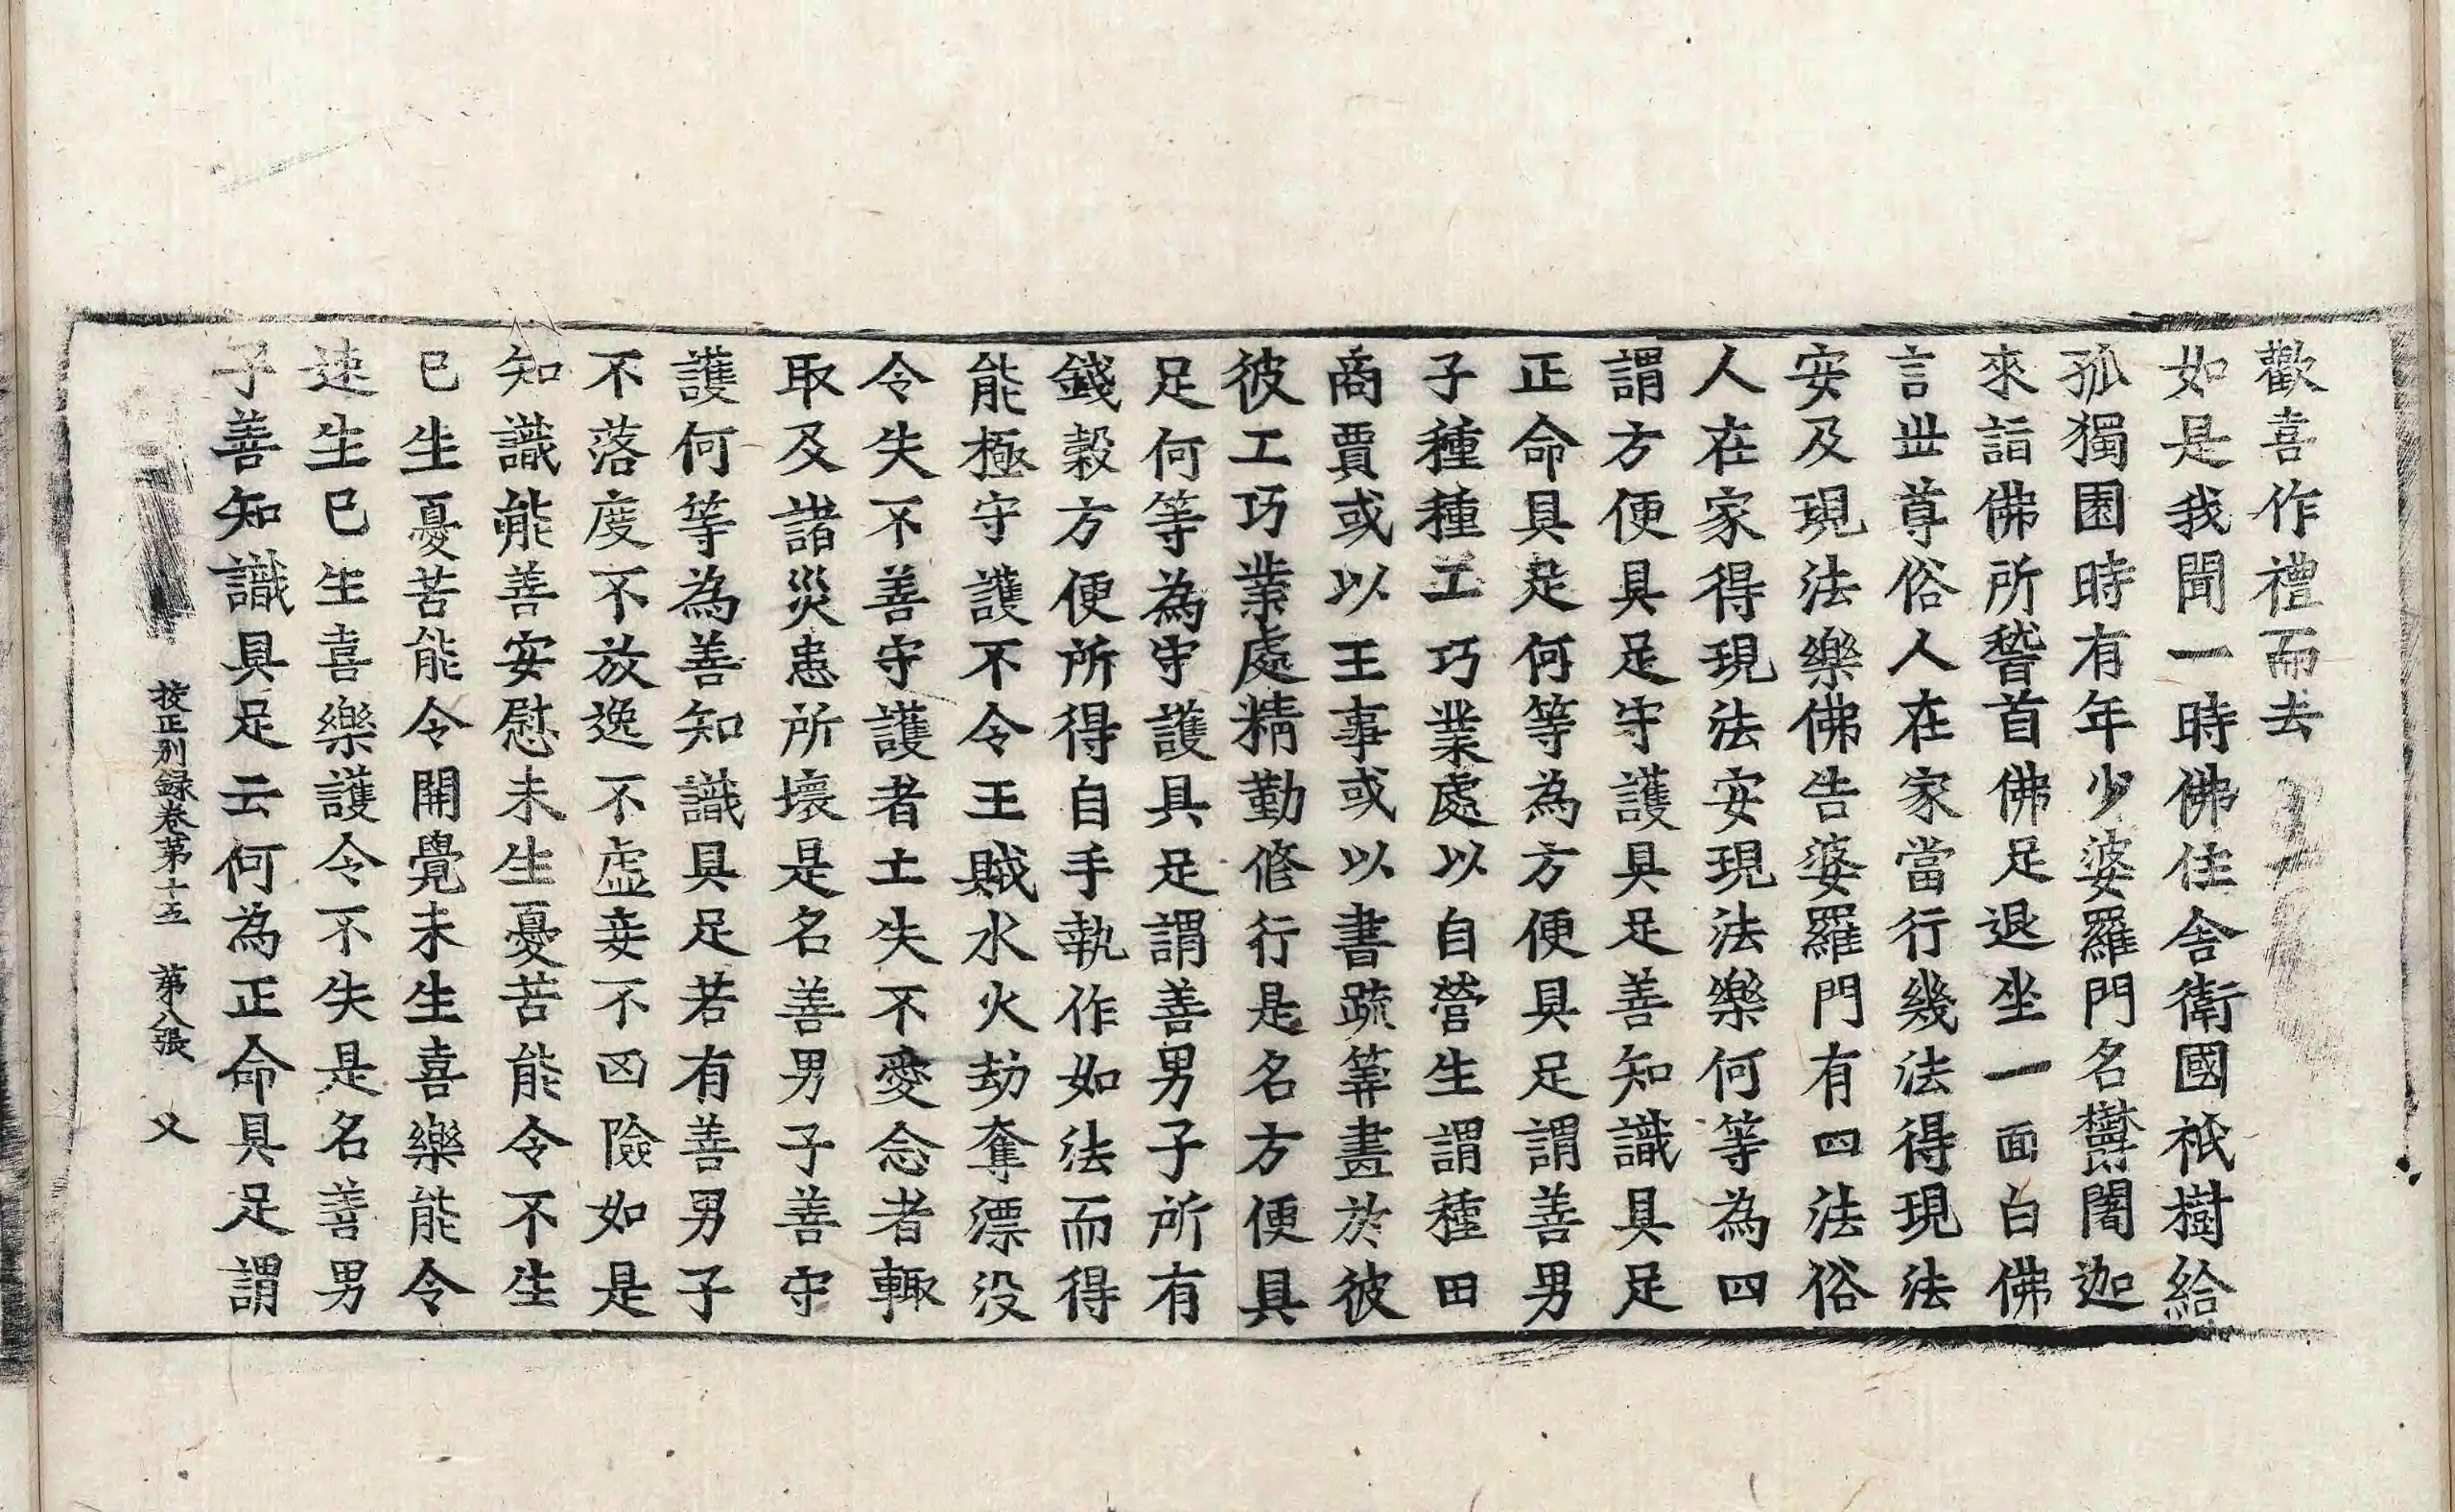 歡喜作禮而去
如是我聞一時佛住舍衛國祇樹給
孤獨園時有年少婆羅門名欝闍迦
來詣佛所稽首佛足退坐一面白佛
言世尊俗人在家當行幾法得現法
安及現法樂佛告婆羅門有四法俗
人在家得現法安現法樂何等為四
謂方便具足守護具足善知識具足
正命具足何等為方便具足謂善男
子種種工巧業處以自營生謂種田
商賈或以王事或以書疏筭畫於彼
彼工巧業處精勤修行是名方便具
足何等為守護具足謂善男子所有
錢穀方便所得自手執作如法而得
能極守護不令王賊水火劫奪漂没
令失不善守護者土失不愛念者輙
取及諸災患所壞是名善男子善守
護何等為善知識具足若有善男子
不落度不放逸不虛妄不凶險如是
知識能善安慰未生憂苦能令不生
已生憂苦能令開覺未生喜樂能令
速生已生喜樂護令不失是名善男
子善知識具足云何為正命具足謂
挍正別録卷第十五 第八張 义